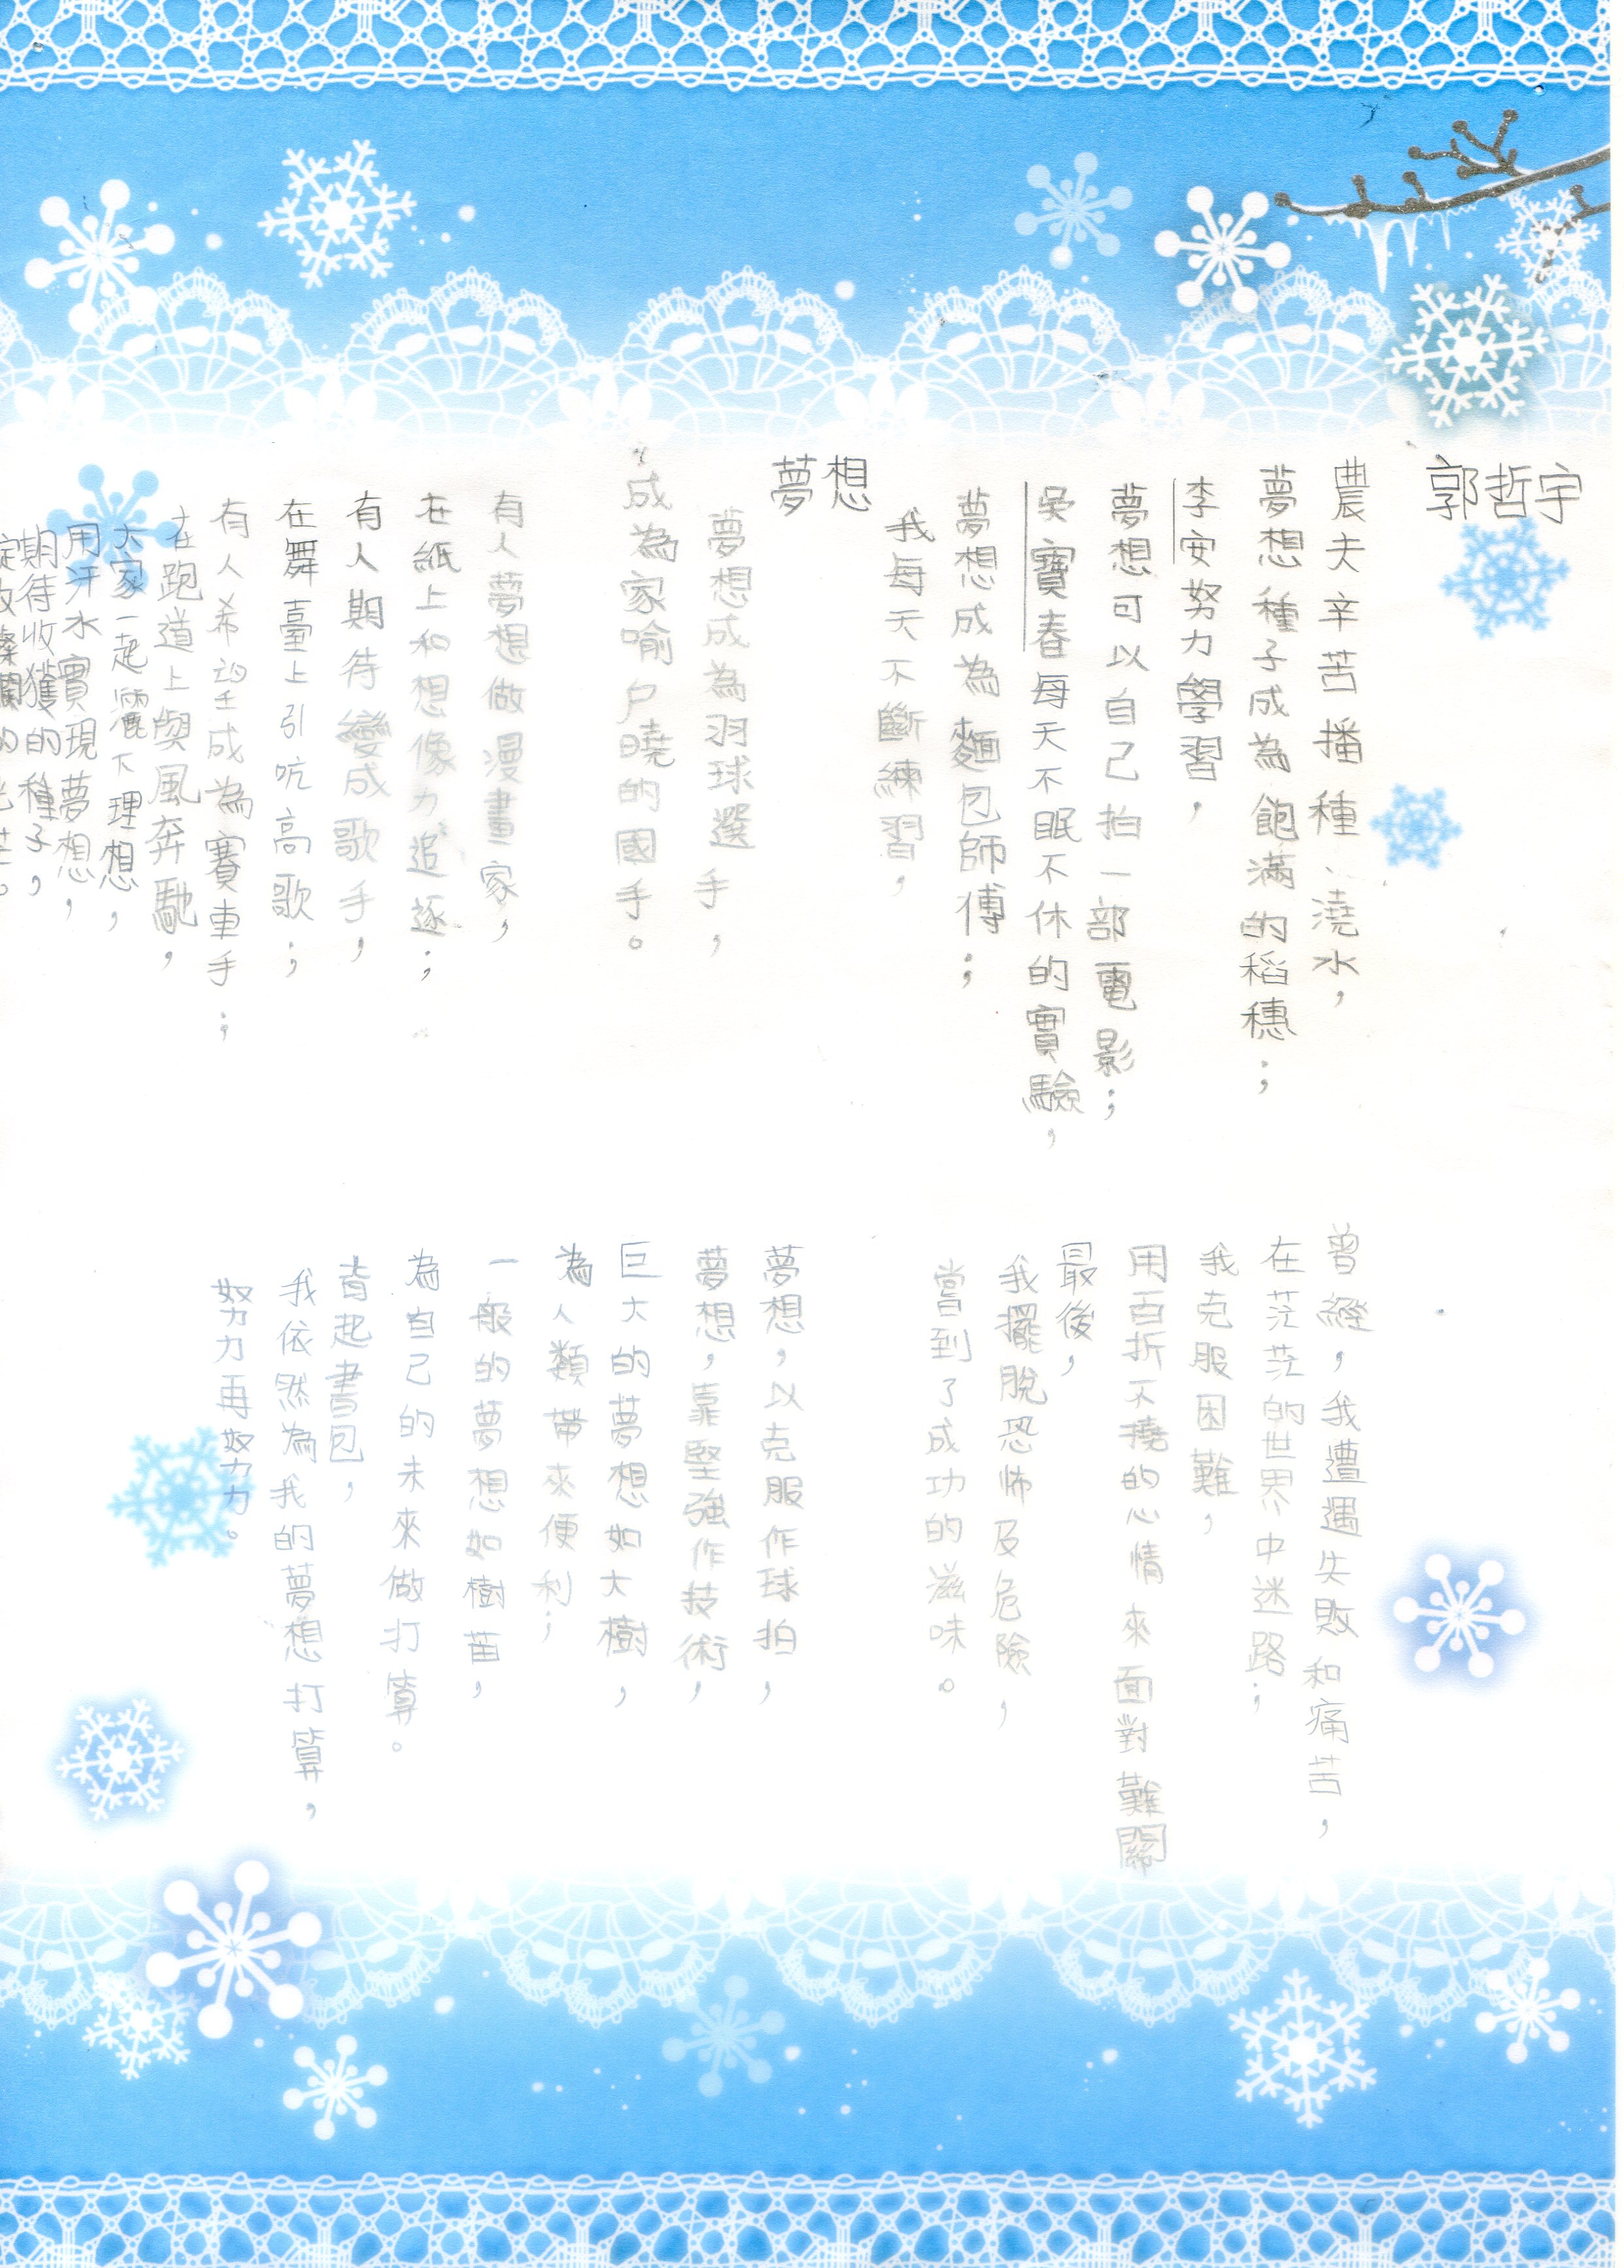 郭哲宇
農夫辛苦播種、澆水，
夢想種子成為飽滿的稻穗；
李安努力學習，
夢想可以自己拍一部電影；
吳寶春每天不眠不休的實驗，
夢想成為麵包師傅；
我每天不斷練習，
夢想
夢想成為羽球選手，
成為家喻戶曉的國手。
有人夢想做漫畫家，
在紙上和想像力追逐；
有人期待變成歌手，
在舞臺上引吭高歌；
有人希望成為賽車手；
在跑道上與風奔馳，
大家一起灑下理想，
用汗水實現夢想，
期待收獲的種子，
綻放燦爛的光芒。
曾經，我遭遇失敗和痛苦，
在茫茫的世界中迷路；
我克服困難，
用百折不撓的心情來面對難關
最後，
我擺脫恐怖及危險，
當到了成功的滋味。
夢想，以克服作球拍，
夢想，靠堅強作技術，
巨大的夢想如大樹，
為人類帶來便利；
一般的夢想如樹苗，
為自己的未來做打算。
背起書包，
我依然為我的夢想打算，
努力再努力。